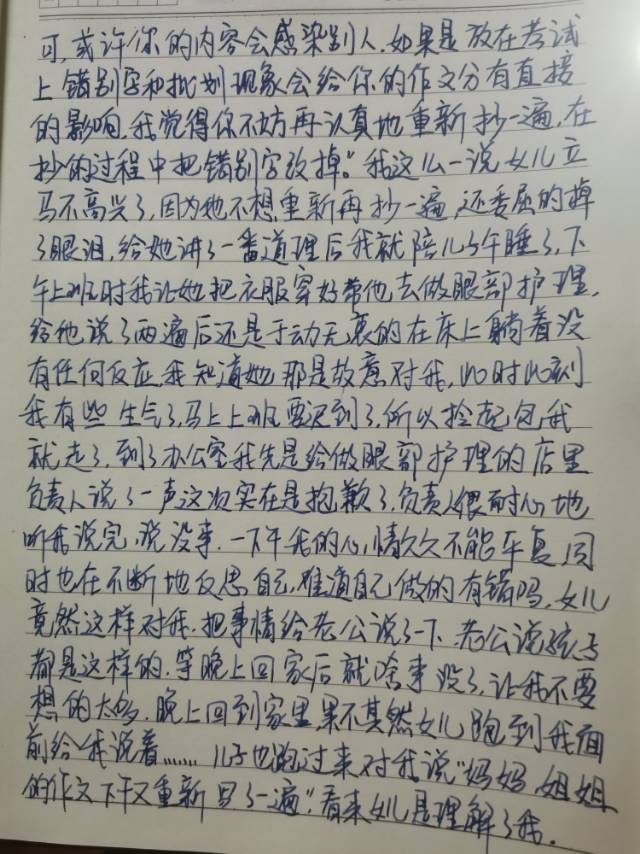 可,或许你的内容会感染别人,如果是放在考试
上错别字和批划现象会给你的作文分有直接
的影响,我觉得你不妨再认真地重新抄一遍,在
抄的过程中把错别字改掉。"我这么一说女儿立
马不高兴了,因为她不想重新再抄一遍,还委屈的掉
了眼泪,给她讲了一番道理后我就陪儿子午睡了,下
午上班时我让她把衣服穿好带他去做眼部护理,
给他说了两遍后还是于动无衷的在床上躺着没
有任何反应,我知道她那是故意对我,此时此刻
我有些生气了,马上上班要迟到了,所以拴起包我
就走了,到了办公室我先是给做眼部护理的店里
负责人说了一声这次实在是抱歉了,负责人很耐心地
听我说完,说没事.一下午我的心情久久不能平复,同
时也在不断地反思自己,难道自己做的有错吗,女儿
竟然这样对我.把事情给老公说了一下.老公说孩子
都是这样的.等晚上回家后就啥事没了,让我不要
想的太多.晚上回到家里果不其然女儿跑到我面
前给我说着……儿子也跑过来对我说"妈妈,姐姐
的作文下午又重新写了一遍".看来女儿是理解了我.